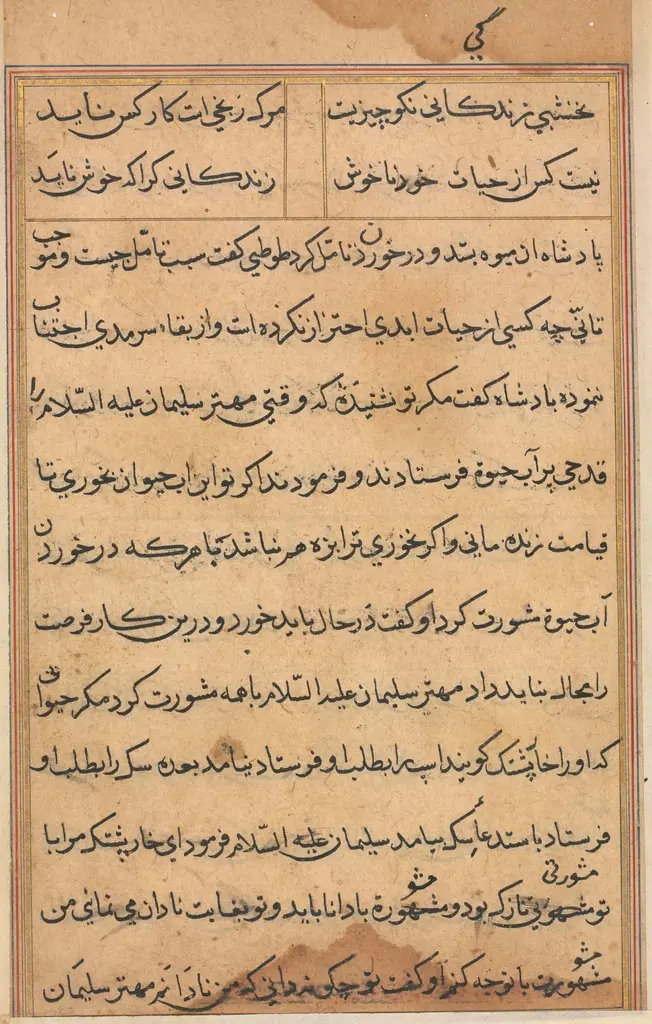 کی
نخشبی زندکانی نکو چیزیت مرک زنجی است کار کس نآید
نیست کس از حیات خود ناخوش زندکانی کرا که خوش نآید
پادشاه آن میوه بستد و در خوردن تامّل کرد طوطی کفت سبب تامّل چیست و موجب
تانّی چه کسی از حیات ابدی احتراز نکرده است و از بقاء سرمدی اجتناب
ننموده پادشاه کفت مکر تو نشنیدهٔ که وقتی مهتر سلیمان علیه السّلام را
قدحی پر آب حیوة فرستادند و فرمودند اکر تو این آب حیوان بخوری تا
قیامت زنده مانی و اکر نخوری ترا بزه هم نباشد با هر که در خوردن
آب حیوة مشورت کرد او کفت در حال باید خورد و درین کار فرصت
را مجال نباید داد مهتر سلیمان علیه السّلام با همه مشورت کرد مکر حیوانی
که او را خارپشتک کویند اسپ را بطلب او فرستاد نیامد بعده سک را بطلب او
فرستاد با ستدعاء سک بیامد سلیمان علیه السّلام فرمود ای خارپشتک مرا با
تو مشورتی نازک بود و مشورة با دانا باید و تو بغایت نادان می نمائی من
مشورت با تو چه کنم او کفت تو چکونه دانی که من نادانم مهتر سلیمان